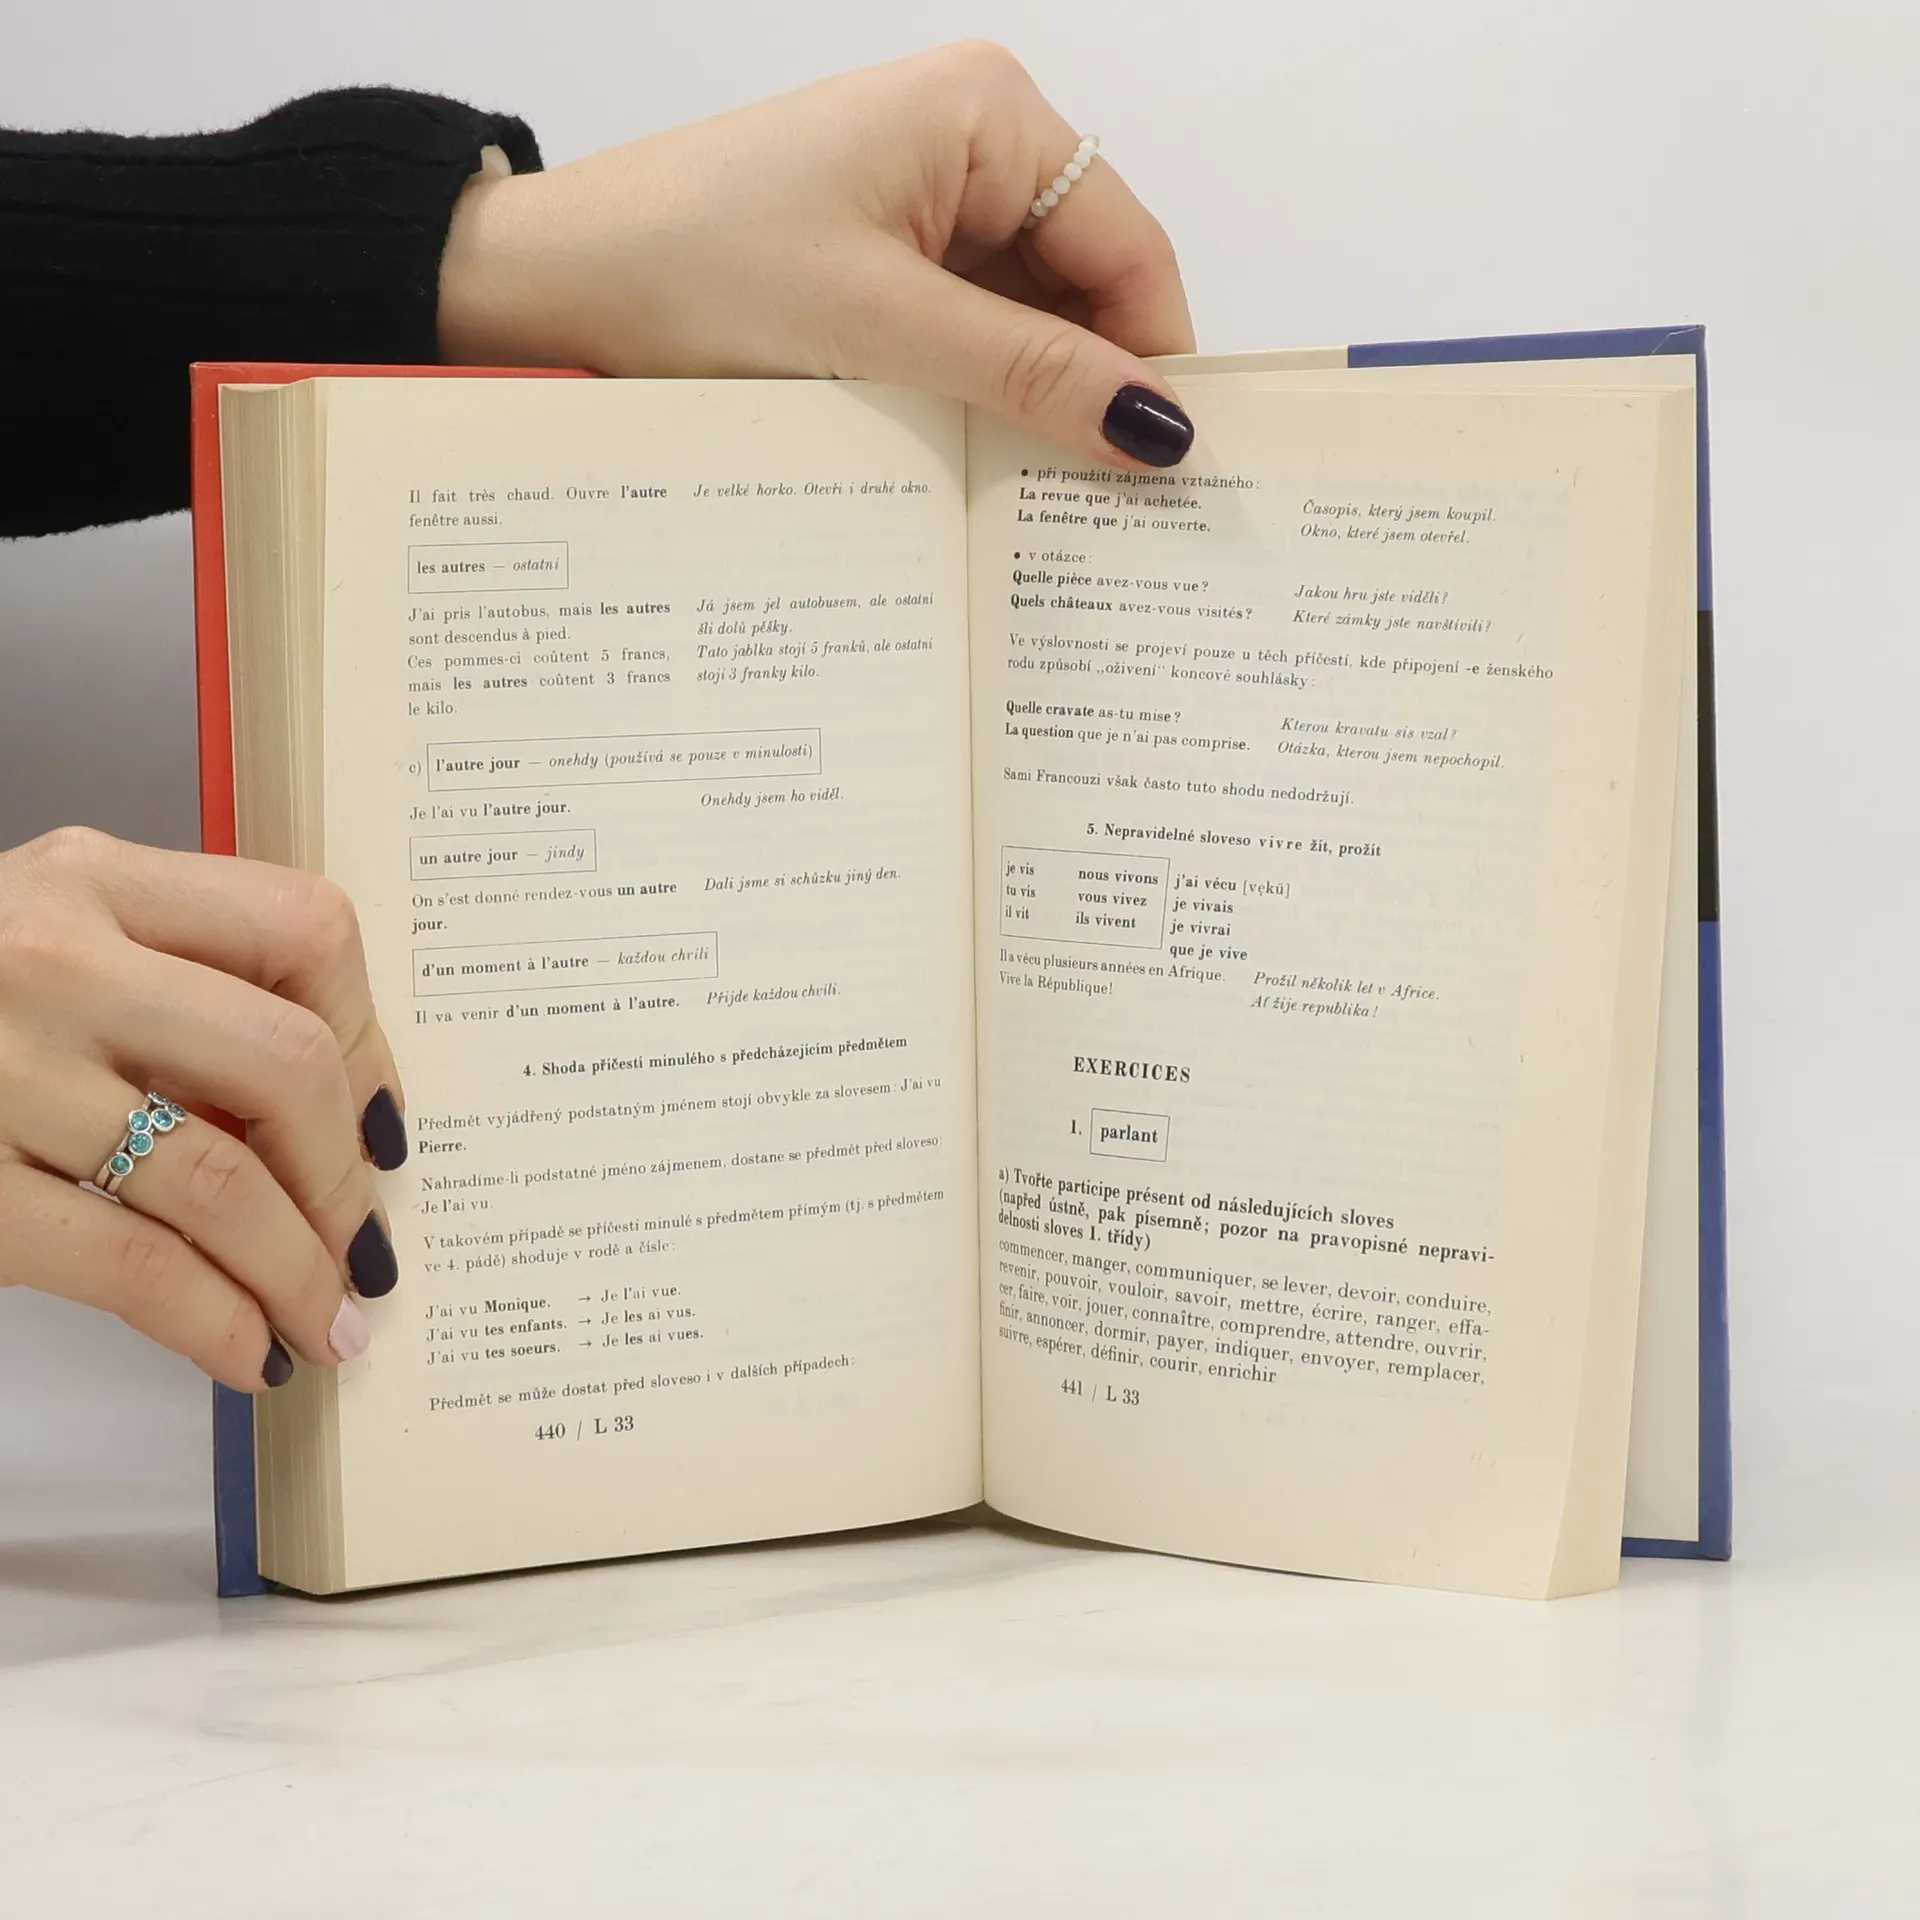 Il fait très chaud. Ouvre l'autre Je velké horko. Otevři i druhé okno.
fenêtre aussi.
les autres — ostatní
J'ai pris l'autobus, mais les autres Já jsem jel autobusem, ale ostatní
sont descendus à pied. šli dolů pěšky.
Ces pommes-ci coûtent 5 francs, Tato jablka stojí 5 franků, ale ostatní
mais les autres coûtent 3 francs stojí 3 franky kilo.
le kilo.
c) l'autre jour — onehdy (používá se pouze v minulosti)
Je l'ai vu l'autre jour. Onehdy jsem ho viděl.
un autre jour — jindy
On s'est donné rendez-vous un autre Dali jsme si schůzku jiný den.
jour.
d'un moment à l'autre — každou chvíli
Il va venir d'un moment à l'autre. Přijde každou chvíli.
4. Shoda příčestí minulého s předcházejícím předmětem
Předmět vyjádřený podstatným jménem stojí obvykle za slovesem: J'ai vu
Pierre.
Nahradíme-li podstatné jméno zájmenem, dostane se předmět před sloveso:
Je l'ai vu.
V takovém případě se příčestí minulé s předmětem přímým (tj. s předmětem
ve 4. pádě) shoduje v rodě a čísle:
J'ai vu Monique. → Je l'ai vue.
J'ai vu tes enfants. → Je les ai vus.
J'ai vu tes soeurs. → Je les ai vues.
Předmět se může dostat před sloveso i v dalších případech:
440 / L 33
• při použití zájmena vztažného:
La revue que j'ai achetée. Časopis, který jsem koupil.
La fenêtre que j'ai ouverte. Okno, které jsem otevřel.
• v otázce:
Quelle pièce avez-vous vue? Jakou hru jste viděli?
Quels châteaux avez-vous visités? Které zámky jste navštívili?
Ve výslovnosti se projeví pouze u těch příčestí, kde připojení -e ženského
rodu způsobí „oživení“ koncové souhlásky:
Quelle cravate as-tu mise? Kterou kravatu sis vzal?
La question que je n'ai pas comprise. Otázka, kterou jsem nepochopil.
Sami Francouzi však často tuto shodu nedodržují.
5. Nepravidelné sloveso vivre žít, prožít
je vis nous vivons j'ai vécu [vękü]
tu vis vous vivez je vivais
il vit ils vivent je vivrai
que je vive
Il a vécu plusieurs années en Afrique. Prožil několik let v Africe.
Vive la République! Ať žije republika!
EXERCICES
1. parlant
a) Tvořte participe présent od následujících sloves
(napřed ústně, pak písemně; pozor na pravopisné nepravi-
delnosti sloves 1. třídy)
commencer, manger, communiquer, se lever, devoir, conduire,
revenir, pouvoir, vouloir, savoir, mettre, écrire, ranger, effa-
cer, faire, voir, jouer, connaître, comprendre, attendre, ouvrir,
finir, annoncer, dormir, payer, indiquer, envoyer, remplacer,
suivre, espérer, définir, courir, enrichir
441 / L 33